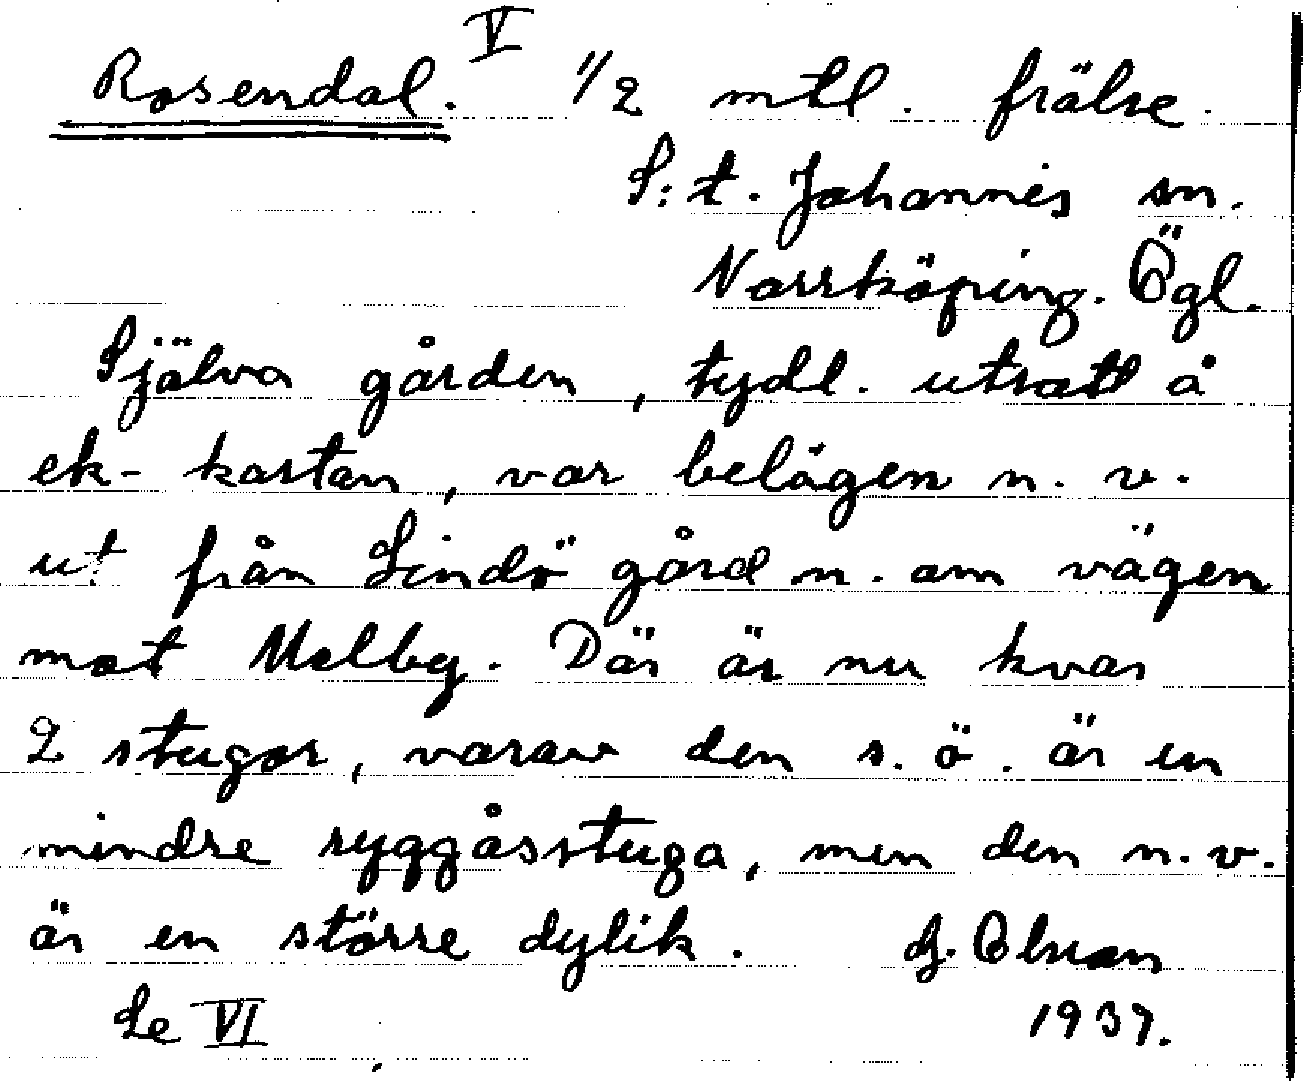 Rosendal. V 1/2 mtl. frälse.
S:t. Johannes sn.
Norrköping. Ögl.
Själva gården, tydl. utsatt å
ek-kartan, var belägen n. v.
ut från Lindö gård n. om vägen
mot Melby. Där är nu kvar
2 stugor, varav den s. ö. är en
mindre ryggåsstuga, men den n. v.
är en större dylik. G. Olson
Se VI 1937.